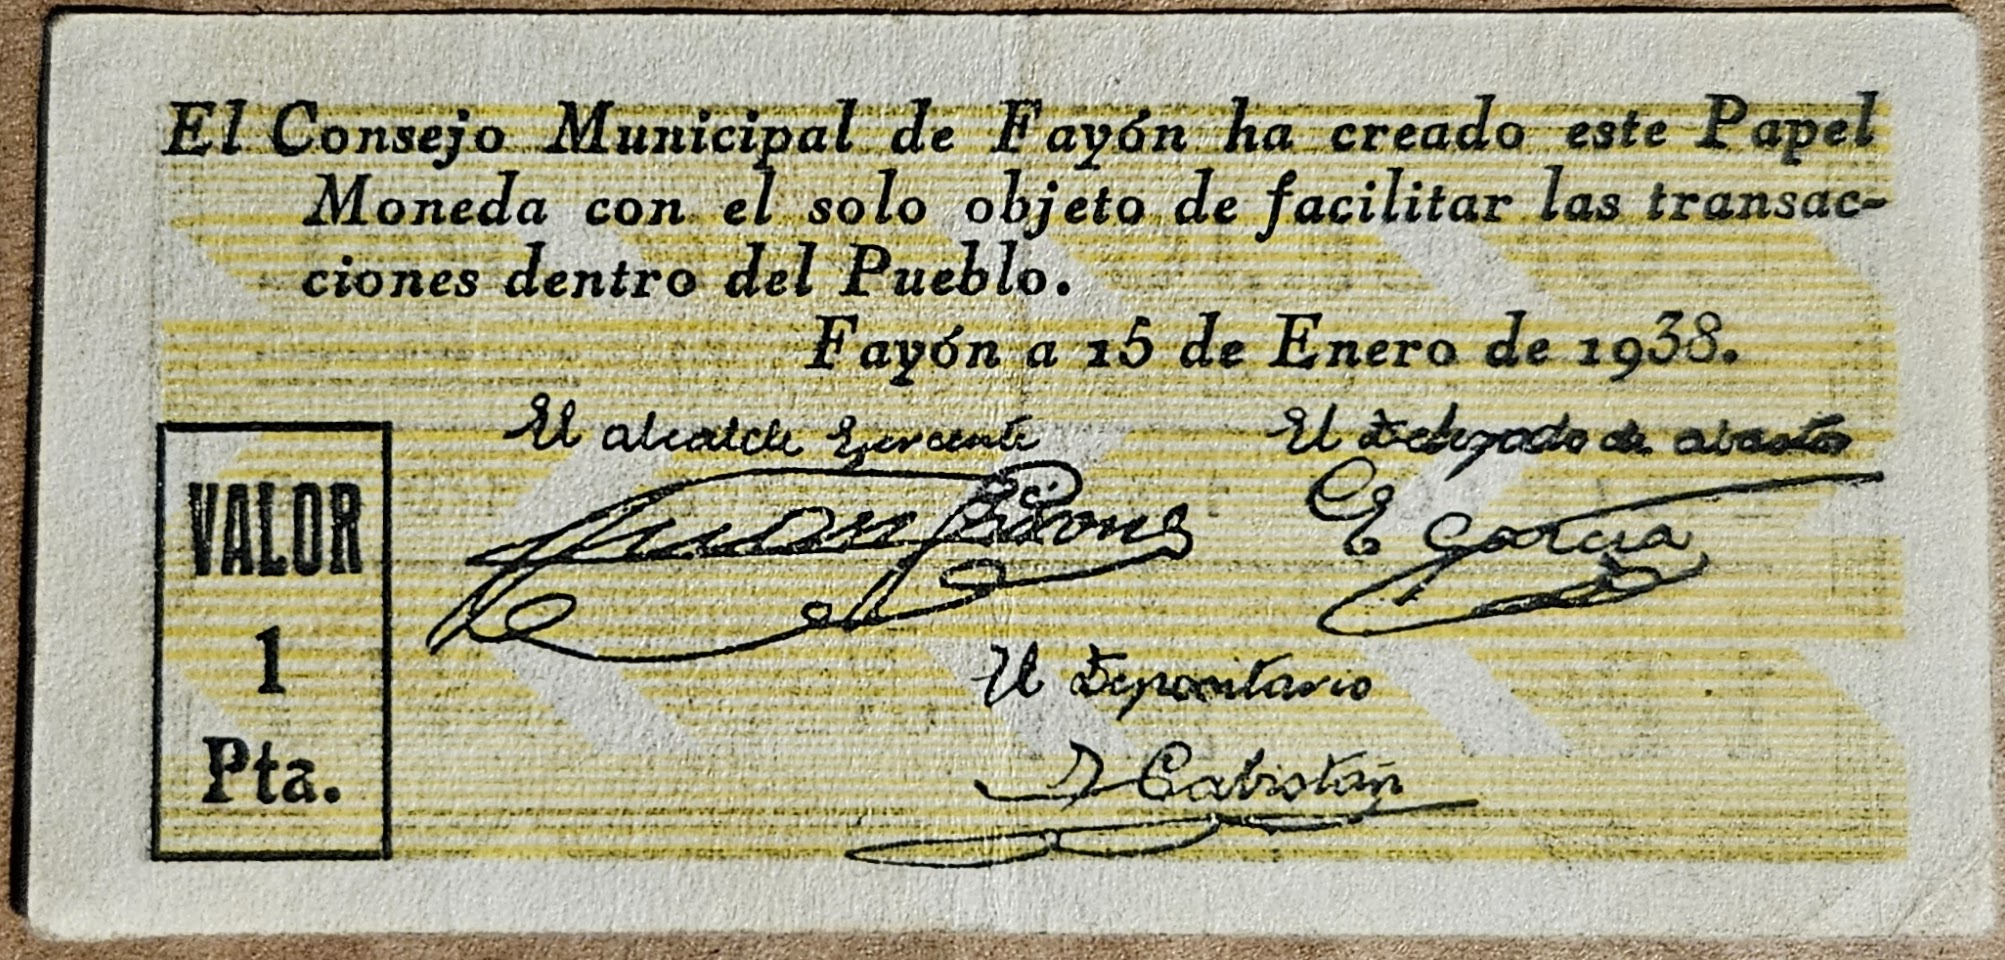 El Consejo Municipal de Fayón ha creado este Papel
Moneda con el solo objeto de facilitar las transac-
ciones dentro del Pueblo.
Fayón a 15 de Enero de 1938.
El alcalde Ejerciente
El Delegado de abastos
VALOR
1
Pta.
Juan
E Garcia
El Depositario
Cabistán